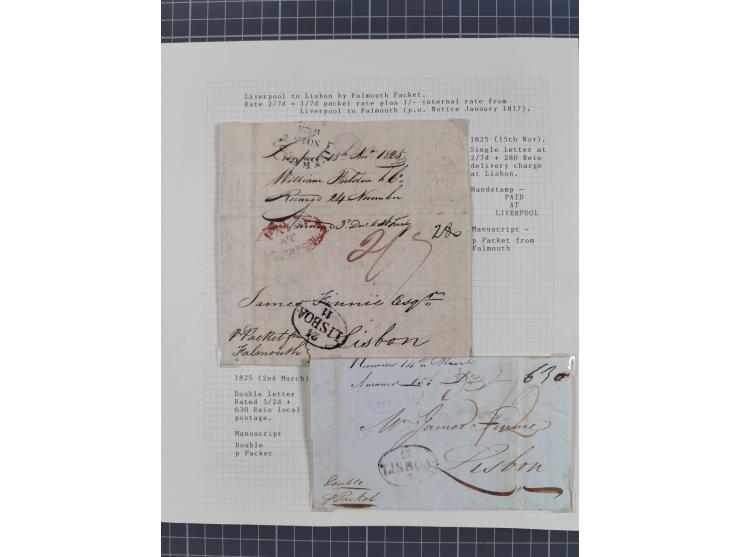 Liverpool to Lisbon by Falmouth Packet.
Rate 2/7d = 1/7d packet rate plus 1/- internal rate from
Liverpool to Falmouth (p.u. Notice January 1817).
1825 (15th Nov).
Single letter at
2/7d + 280 Reis
delivery charge
at Lisbon.
Handstamp -
PAID
AT
LIVERPOOL
Manuscript -
p Packet from
Falmouth
Liverpool 15th Nov 1825
William
24 November
280
2/7
James Finnie Esqr
LISBOA
24
11
Lisbon
p Packet from
Falmouth
1825 (2nd March)
Double letter
Rated 5/2d +
630 Reis local
postage.
Manuscript
Double
p Packet
14th March
630
5/2
Mr James Finnie
13
LISBOA
3
Lisbon
Double
p Packet